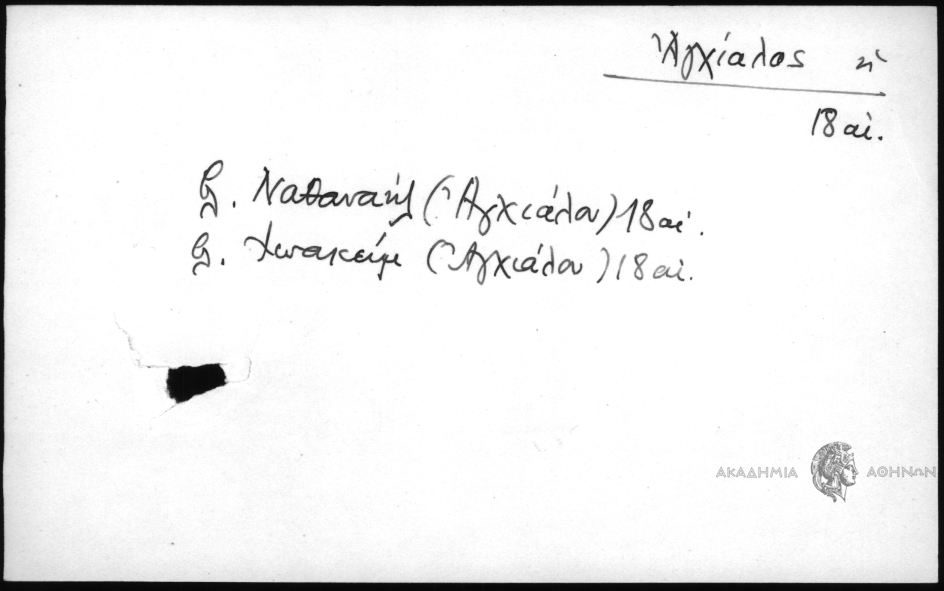 Ἀγχίαλος ἡ
18 αἰ.
β. Ναθαναήλ (Ἀγχιάλου) 18 αἰ.
β. Ἰωακείμ (Ἀγχιάλου) 18 αἰ.
ΑΚΑΔΗΜΙΑ ΑΘΗΝΩΝ